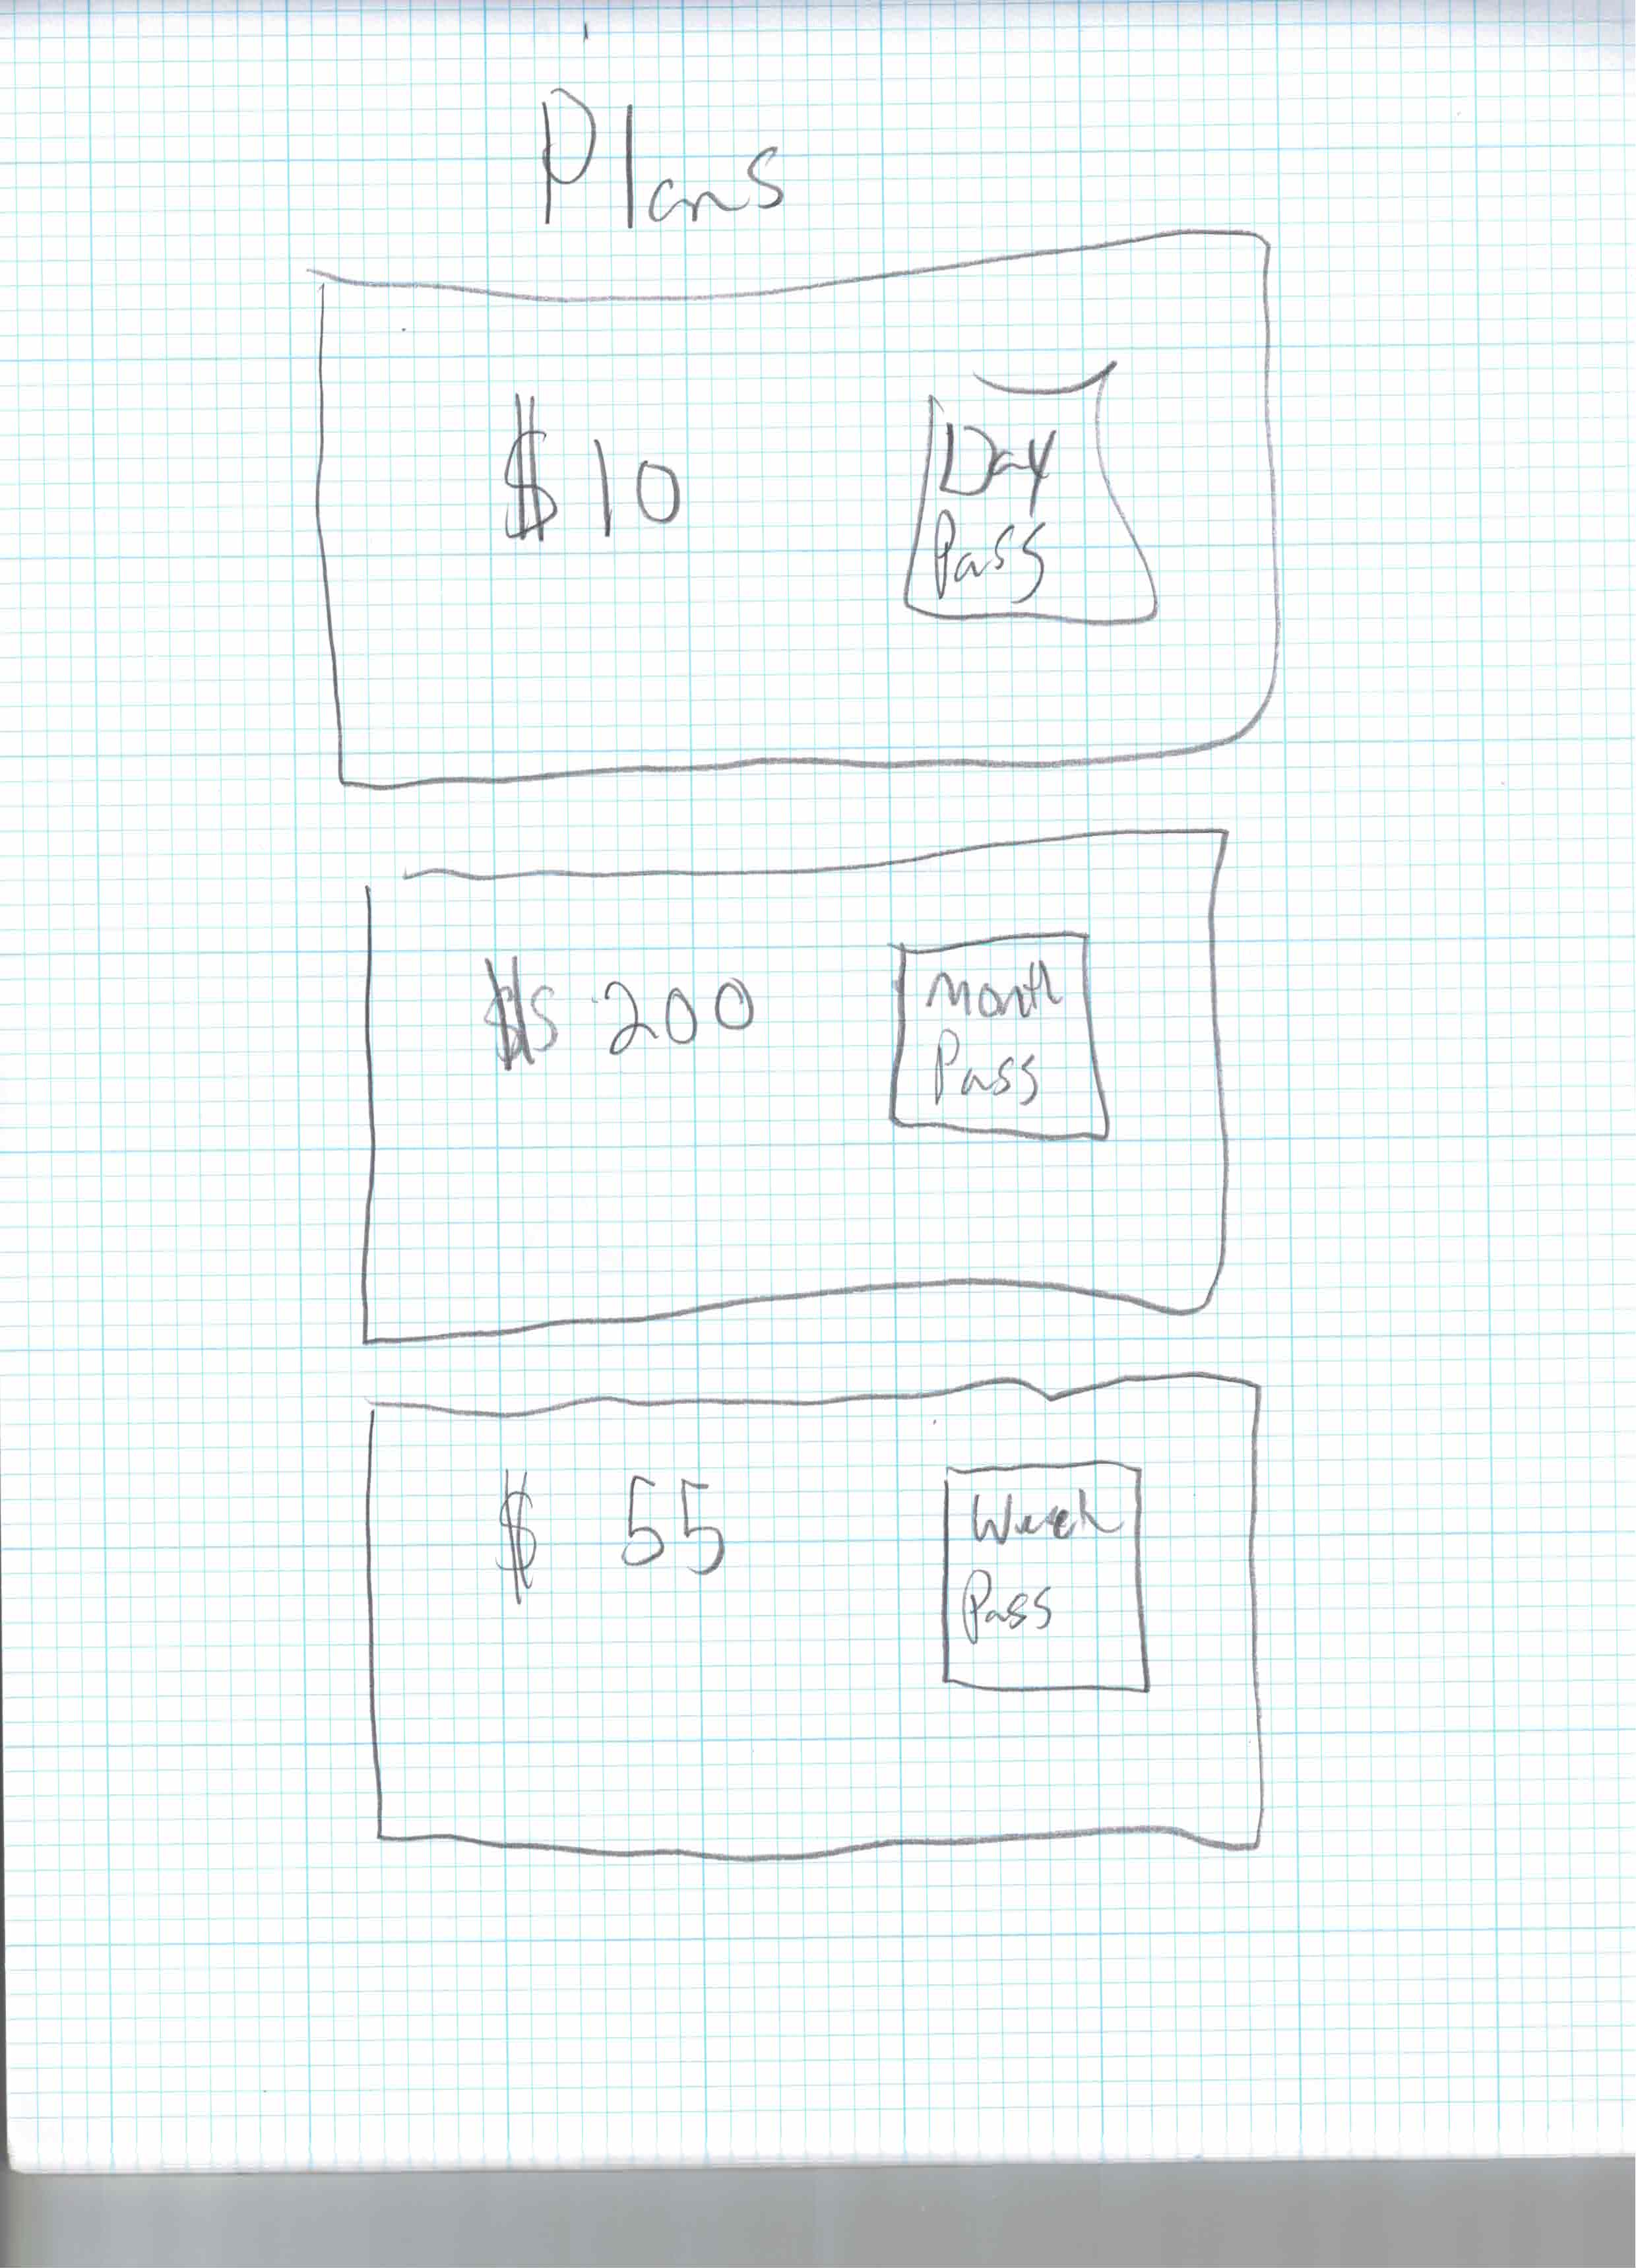 Plans
$ 10
Day
Pass
$ 200
Month
Pass
$ 55
Week
Pass